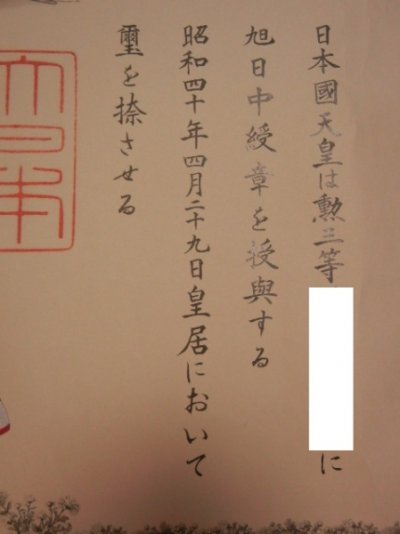 日本國天皇は勲三等に
旭日中綬章を授與する
昭和四十年四月二十九日皇居において
璽を捺させる
大日本